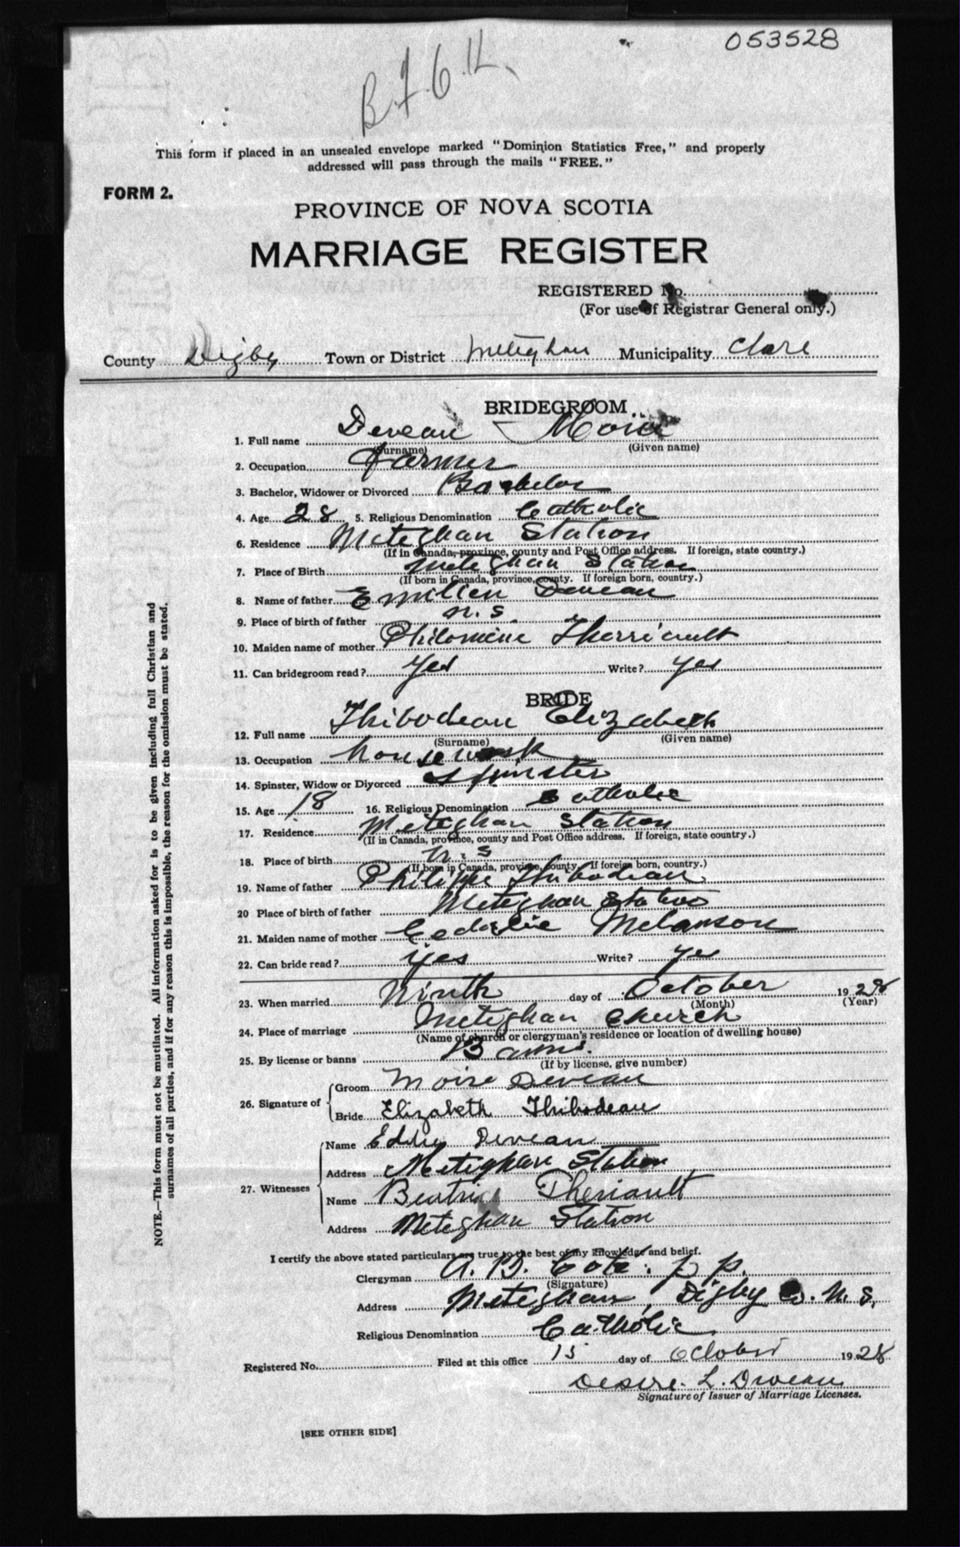 053528
This form if placed in an unsealed envelope marked "Dominion Statistics Free," and properly
addressed will pass through the mails "FREE."
FORM 2.
PROVINCE OF NOVA SCOTIA
MARRIAGE REGISTER
REGISTERED No.
(For use of Registrar General only.)
County Digby Town or District Meteghan Municipality Clare
BRIDEGROOM
1. Full name Deveau Moise
(Surname) (Given name)
2. Occupation farmer
3. Bachelor, Widower or Divorced Bachelor
4. Age 28 5. Religious Denomination Catholic
6. Residence Meteghan Station
(If in Canada, province, county and Post Office address. If foreign, state country.)
7. Place of Birth Meteghan Station
(If born in Canada, province, county. If foreign born, country.)
8. Name of father Emillen Deveau
9. Place of birth of father N. S.
10. Maiden name of mother Philomene Therriault
11. Can bridegroom read? Yes Write? yes
BRIDE
12. Full name Thibodeau Elizabeth
(Surname) (Given name)
13. Occupation housework
14. Spinster, Widow or Divorced Spinster
15. Age 18 16. Religious Denomination Catholic
17. Residence Meteghan Station
(If in Canada, province, county and Post Office address. If foreign, state country.)
18. Place of birth N. S
(If born in Canada, province, county. If foreign born, country.)
19. Name of father Philippe Thibodeau
20 Place of birth of father Meteghan Station
21. Maiden name of mother Melanson
22. Can bride read? Yes Write? ye
23. When married Ninth day of October 1928
(Month) (Year)
24. Place of marriage Meteghan church
(Name of church or clergyman's residence or location of dwelling house)
25. By license or banns Banns.
(If by license, give number)
26. Signature of Groom Moise Deveau
Bride Elizabeth Thibodeau
27. Witnesses Name Eddy Deveau
Address Meteghan Station
Name Beatrice Theriault
Address Meteghan Station
I certify the above stated particulars are true to the best of my knowledge and belief.
Clergyman A. B. Cote. p p.
(Signature)
Address Meteghan, Digby Co. N. S,
Religious Denomination Catholic
Registered No. Filed at this office 15 day of October 1928
Desire. L. Deveau
Signature of Issuer of Marriage Licenses.
[SEE OTHER SIDE]
NOTE.—This form must not be mutilated. All information asked for is to be given including full Christian and
surnames of all parties, and if for any reason this is impossible, the reason for the omission must be stated.